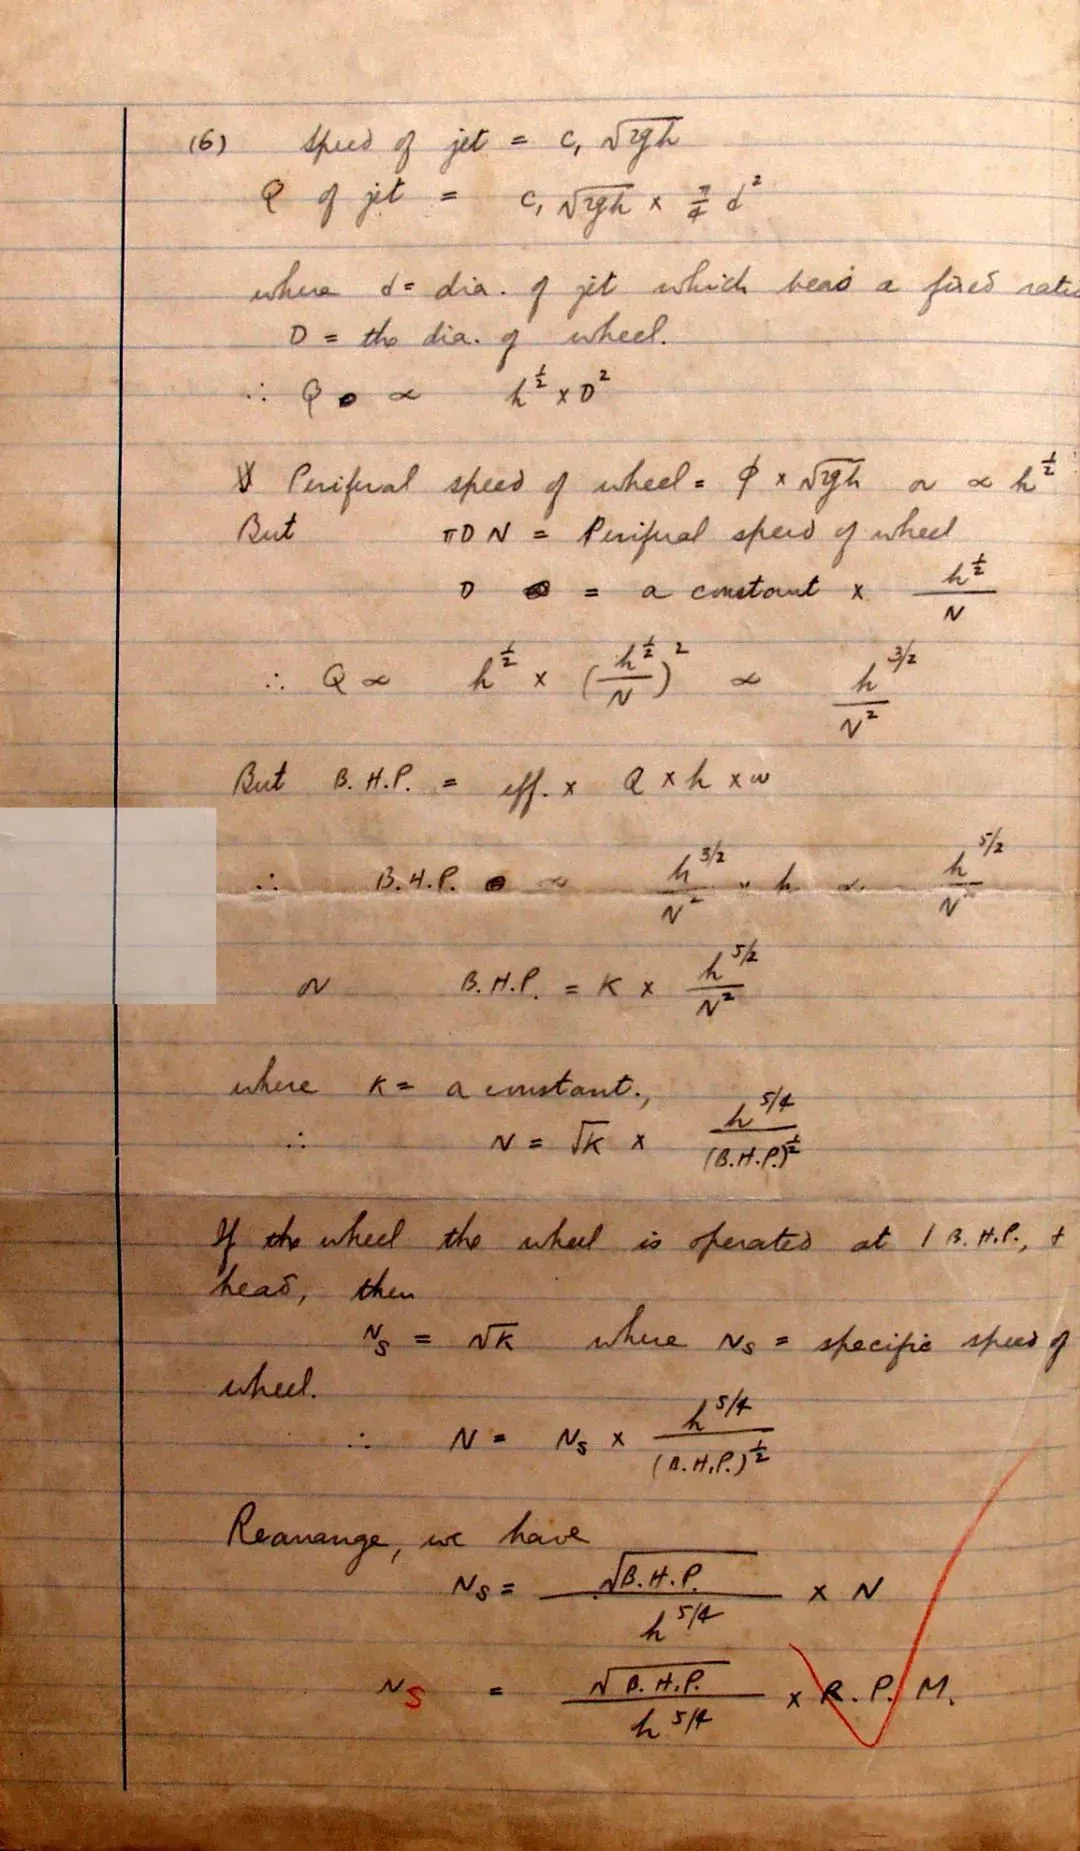 (6) Speed of jet = C₁ √2gh
Q of jet = C₁ √2gh × π/4 d²
where d = dia. of jet which bears a fixed ratio
D = the dia. of wheel.
∴ Q ∝ h^½ × D²
Periferal speed of wheel = ϕ × √2gh or ∝ h^½
But πDN = Periferal speed of wheel
D = a constant × h^½/N
∴ Q ∝ h^½ × (h^½/N)² ∝ h^3/2/N²
But B.H.P. = eff. × Q × h × w
∴ B.H.P. ∝ h^3/2/N² × h ∝ h^5/2/N²
or B.H.P. = K × h^5/2/N²
where K = a constant.,
∴ N = √K × h^5/4/(B.H.P.)^½
If the wheel the wheel is operated at 1 B.H.P., +
head, then
Ns = √K where Ns = specific speed of
wheel.
∴ N = Ns × h^5/4/(B.H.P.)^½
Rearange, we have
Ns = √B.H.P./h^5/4 × N
Ns = √B.H.P./h^5/4 × R.P.M.